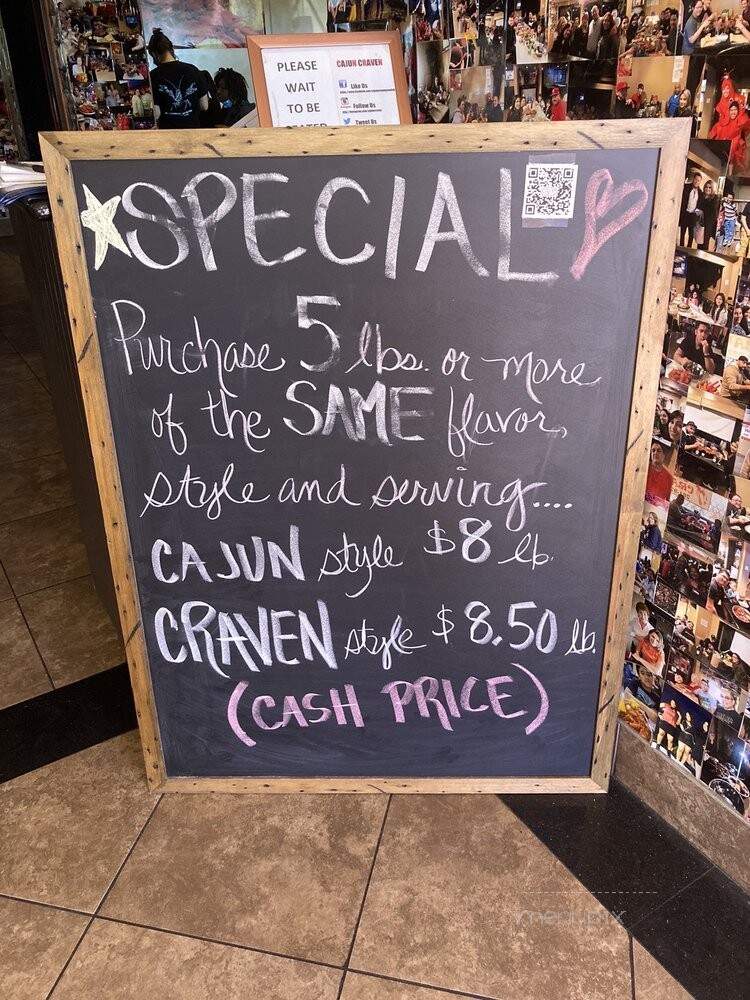 PLEASE
WAIT
TO BE
CAJUN CRAVEN
Like Us
Follow Us
Tweet Us
SPECIAL
Purchase 5 lbs. or more
of the SAME flavor,
style and serving....
CAJUN style $8 lb.
CRAVEN style $8.50 lb.
(CASH PRICE)
menupix